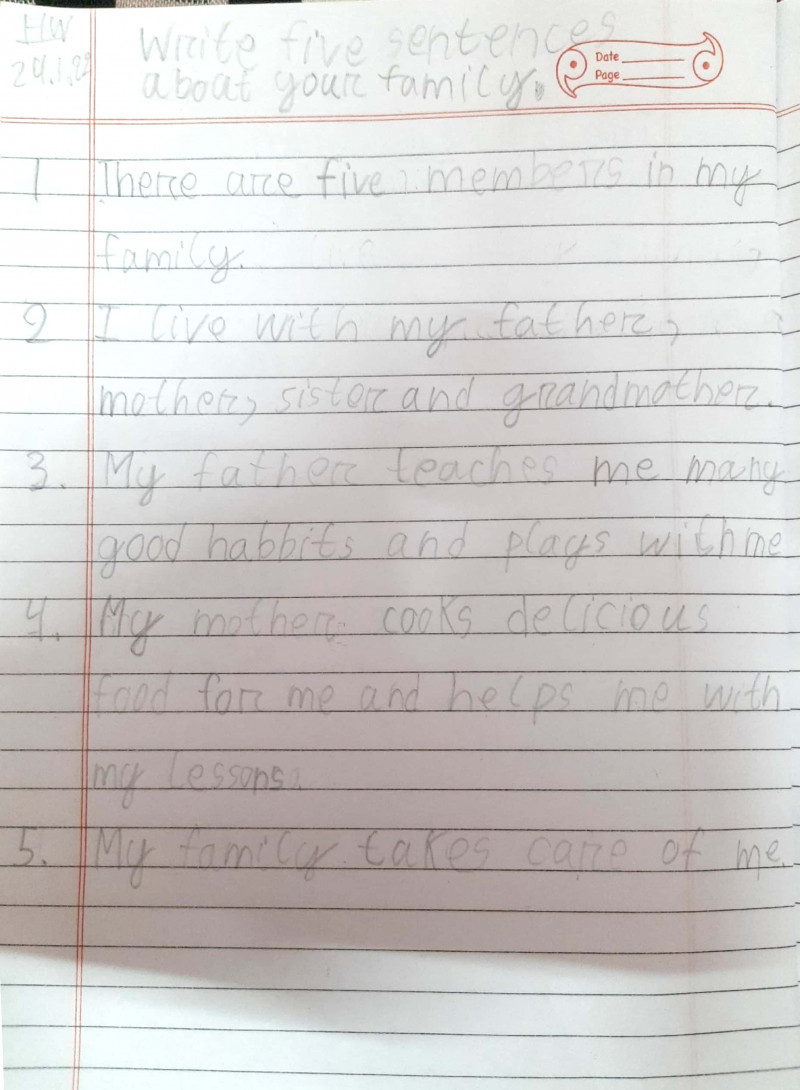 HW
Write five sentences
about your family.
Date
Page
1 There are five members in my
family.
2 I live with my father,
mother, sister and grandmother.
3. My father teaches me many
good habbits and plays with me
4. My mother cooks delicious
food for me and helps me with
my lessons.
5. My family takes care of me.